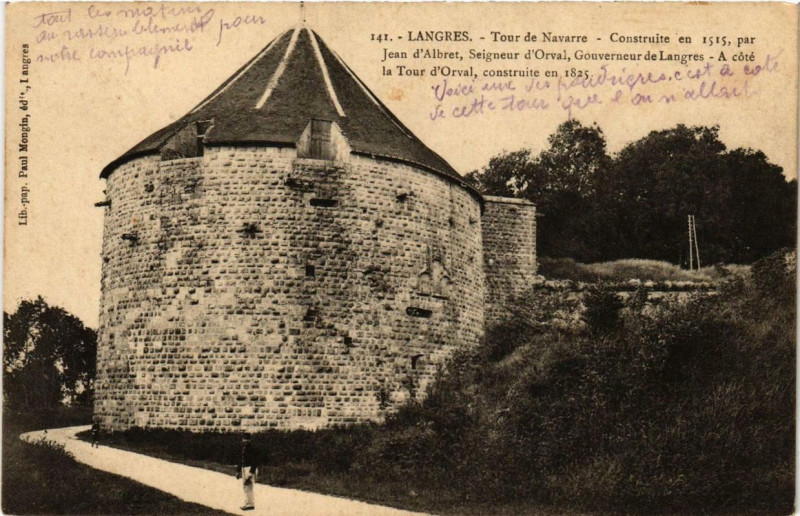 tout les matins
au rassemblement pour
notre compagnie
141. - LANGRES. - Tour de Navarre - Construite en 1515, par
Jean d'Albret, Seigneur d'Orval, Gouverneur de Langres - A côté
la Tour d'Orval, construite en 1825
Voici une des c'est à coté
de cette tour que l'on allait
Lib.-pap. Paul Mongin, éd^it., Langres